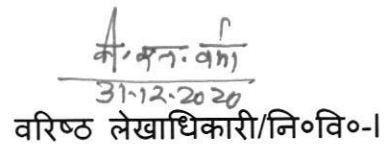 31-12-2020
वरिष्ठ लेखाधिकारी/नि०वि०-I